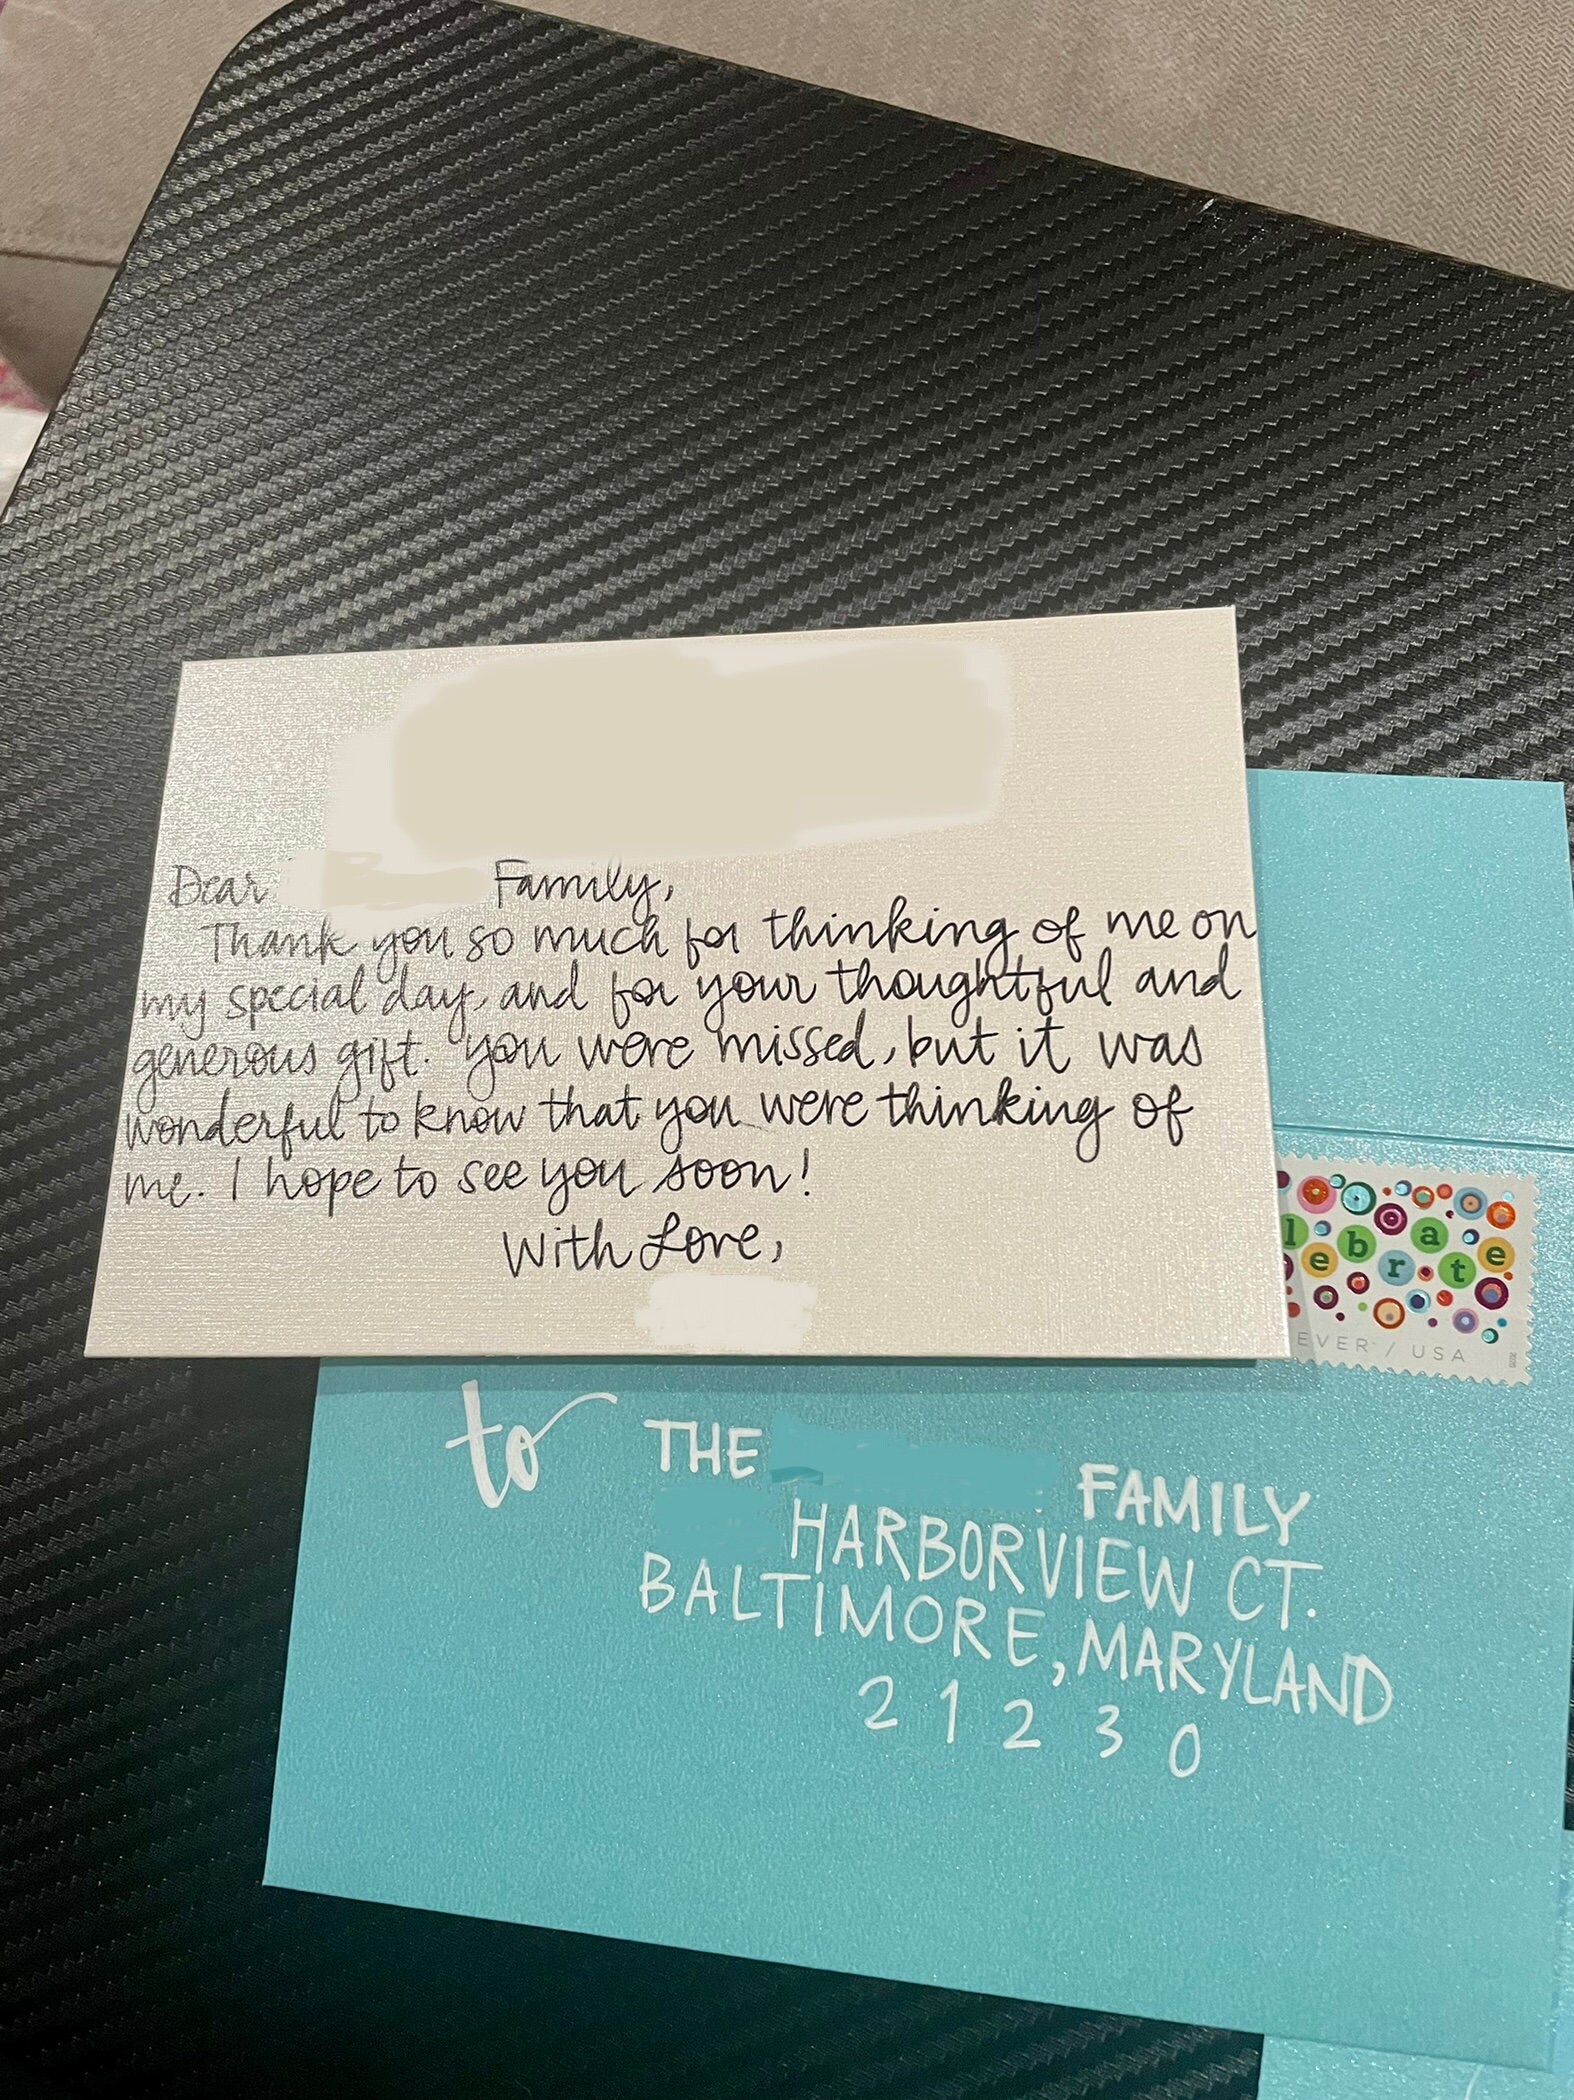 Dear Family,
Thank you so much for thinking of me on
my special day, and for your thoughtful and
generous gift. You were missed, but it was
wonderful to know that you were thinking of
me. I hope to see you soon!
With Love,
lebrate
EVER / USA
to THE FAMILY
HARBORVIEW CT.
BALTIMORE, MARYLAND
21230